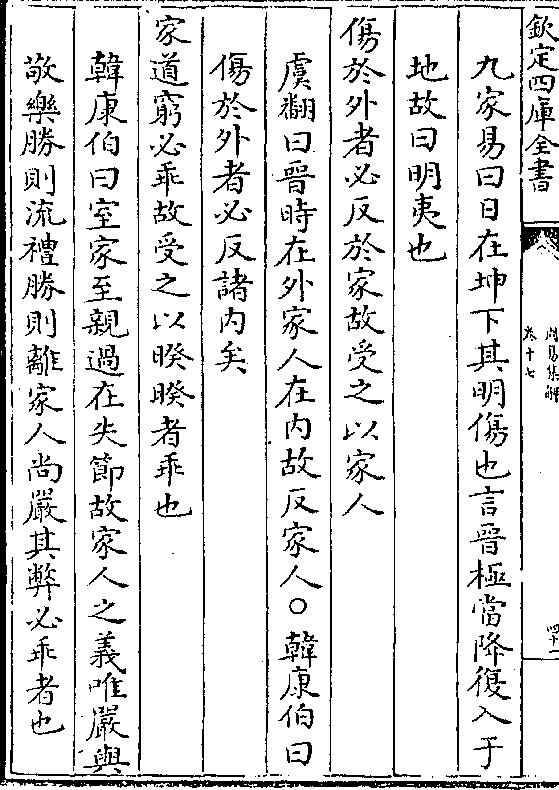 欽定四庫全書
周易集解
卷十七
四十一
九家易曰日在坤下其明傷也言晉極當降復入于
地故曰明夷也
傷於外者必反於家故受之以家人
虞翻曰晉時在外家人在内故反家人○韓康伯曰
傷於外者必反諸内矣
家道窮必乖故受之以睽睽者乖也
韓康伯曰室家至親過在失節故家人之義唯嚴與
敬樂勝則流禮勝則離家人尚嚴其弊必乖者也